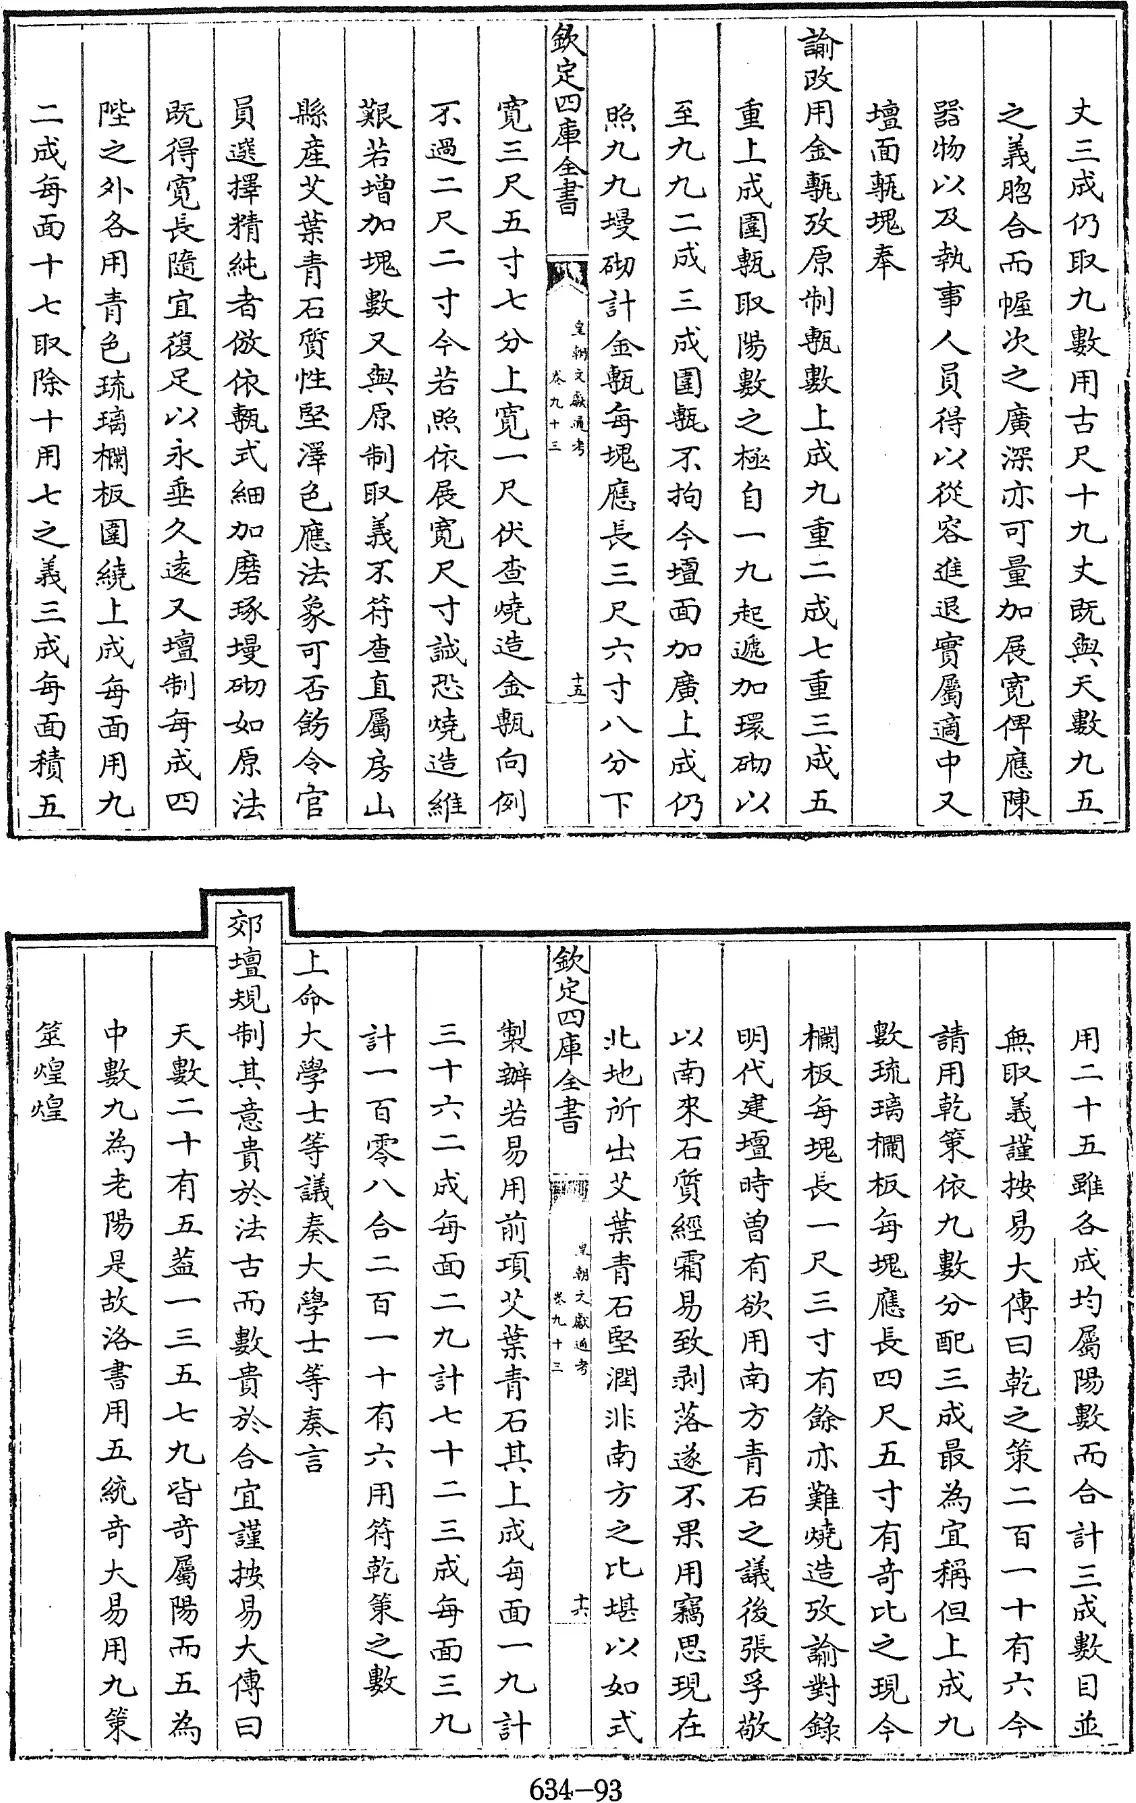 丈三成仍取九數用古尺十九丈既與天數九五
之義脗合而幄次之廣深亦可量加展寛俾應陳
器物以及執事人員得以從容進退實屬適中又
壇面甎塊奉
諭改用金甎攷原制甎數上成九重二成七重三成五
重上成圍甎取陽數之極自一九起遞加環砌以
至九九二成三成圍甎不拘今壇面加廣上成仍
照九九墁砌計金甎每塊應長三尺六寸八分下
欽定四庫全書
皇朝文獻通考
卷九十三
十五
寛三尺五寸七分上寛一尺伏查燒造金甎向例
不過二尺二寸今若照依展寛尺寸誠恐燒造維
艱若增加塊數又與原制取義不符查直屬房山
縣產艾葉青石質性堅澤色應法象可否飭令官
員選擇精純者倣依甎式細加磨琢墁砌如原法
既得寛長隨宜復足以永垂久逺又壇制每成四
陛之外各用青色琉璃欄板圍繞上成每面用九
二成每面十七取除十用七之義三成每面積五
用二十五雖各成均屬陽數而合計三成數目並
無取義謹按易大傳曰乾之策二百一十有六今
請用乾策依九數分配三成最為宜稱但上成九
數琉璃欄板每塊應長四尺五寸有奇比之現今
欄板每塊長一尺三寸有餘亦難燒造攷諭對錄
明代建壇時曽有欲用南方青石之議後張孚敬
以南來石質經霜易致剥落遂不果用竊思現在
北地所出艾葉青石堅潤非南方之比堪以如式
欽定四庫全書
皇朝文獻通考
卷九十三
十六
製辦若易用前項艾葉青石其上成每面一九計
三十六二成每面二九計七十二三成每面三九
計一百零八合二百一十有六用符乾策之數
上命大學士等議奏大學士等奏言
郊壇規制其意貴於法古而數貴於合宜謹按易大傳曰
天數二十有五葢一三五七九皆奇屬陽而五為
中數九為老陽是故洛書用五統奇大易用九策
筮煌煌
634-93